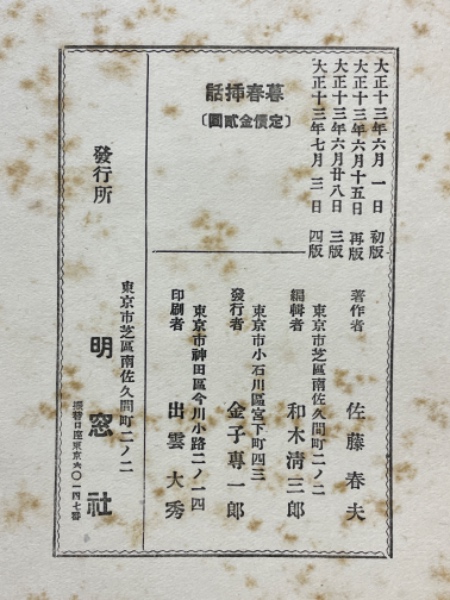 大正十三年六月一日 初版
大正十三年六月十五日 再版
大正十三年六月廿八日 三版
大正十三年七月三日 四版
暮春挿話
〔定價金貳圓〕
著作者 佐藤春夫
東京市芝區南佐久間町二ノ二
編輯者 和木淸三郎
東京市小石川區宮下町四三
發行者 金子專一郎
東京市神田區今川小路二ノ一四
印刷者 出雲大秀
發行所
東京市芝區南佐久間町二ノ二
明窓社
振替口座東京六〇一四七番